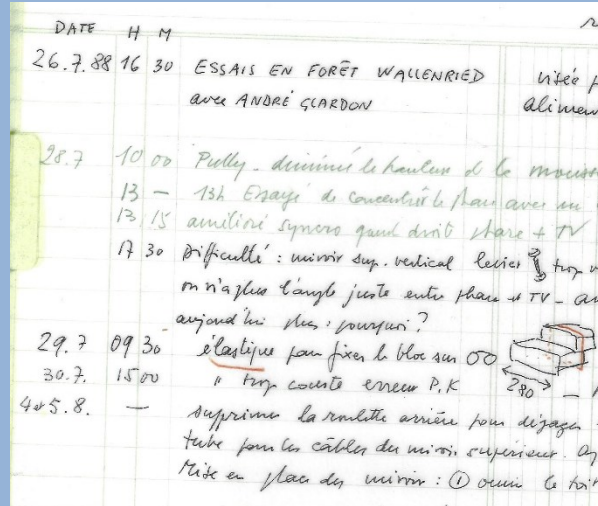 DATE H M
26.7.88 16 30 ESSAIS EN FORÊT WALLENRIED visée
avec ANDRÉ GLARDON alimen
28.7 10 00 Pully - diminué la hauteur de la mousse
13 – 13h Essayé de concentrer le phare avec un
13 15 amélioré syncro quand droit phare + TV
17 30 Difficulté : miroir sup. vertical levier trop
on n'a plus l'angle juste entre phare et TV -
aujourd'hui plus : pourquoi ?
29.7 09 30 élastique pour fixer le bloc sur OO
30.7. 15 00 " trop courte erreur P.K 280
4 et 5.8. — supprimer la roulette arrière pour dégager
tube pour les câbles du miroir supérieur.
Mise en place du miroir : ① ouvrir le toit